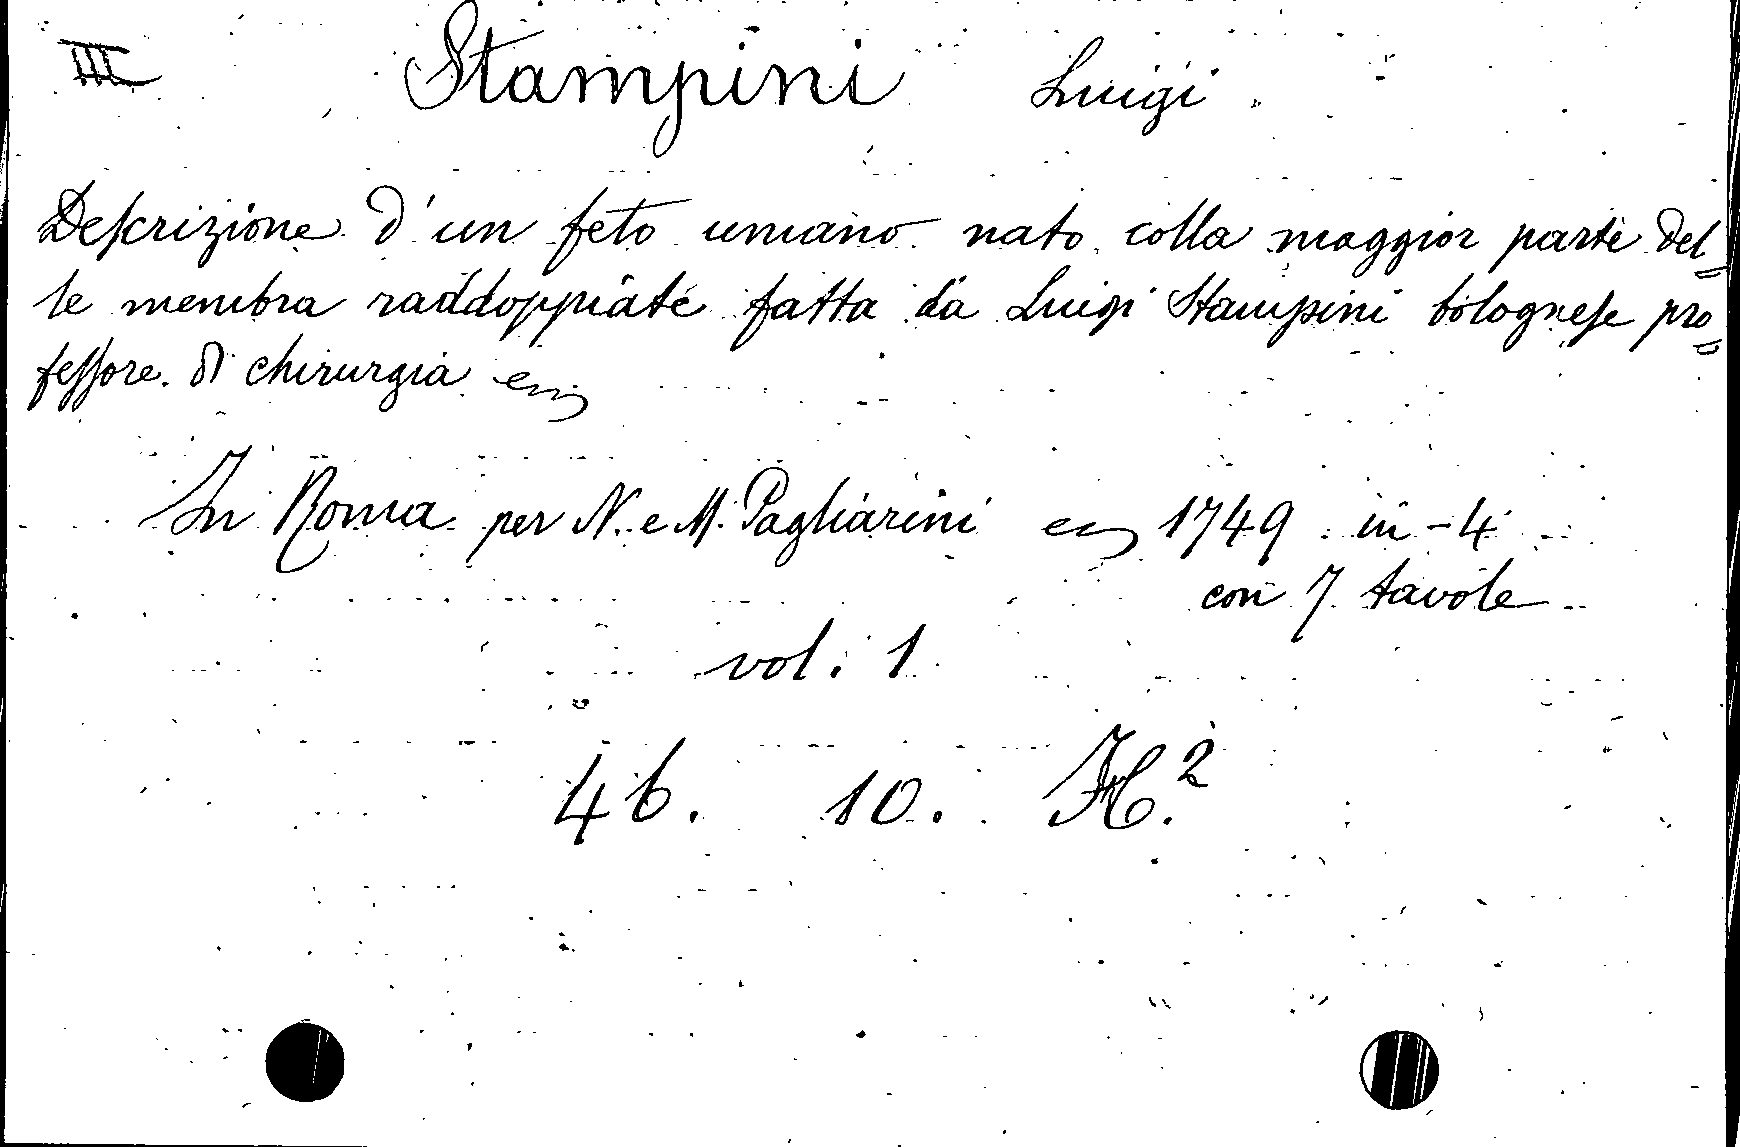 III Stampini Luigi
Deſcrizione d'un feto umano nato colla maggior parte del=
le membra raddoppiate fatta da Luigi Stampini bologneſe pro=
feſſore di chirurgia
In Roma per N. e M. Pagliarini 1749 in-4
con 7 tavole
vol: 1
46. 10. H.²